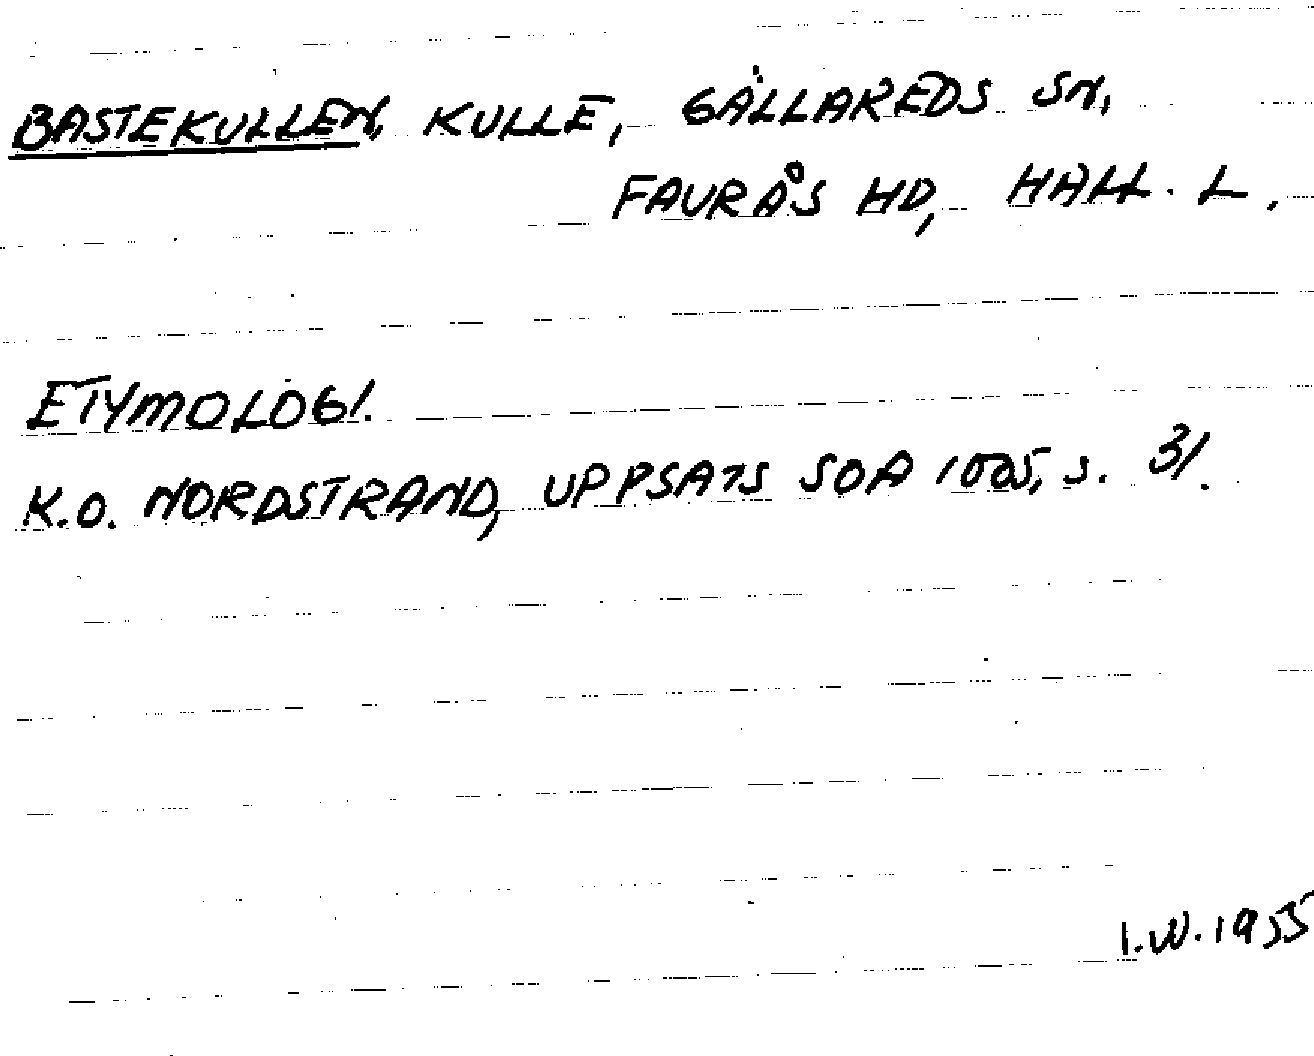 BASTEKULLEN, KULLE, GÄLLAREDS SN,
FAURÅS HD, HALL. L.
ETYMOLOGI.
K.O. NORDSTRAND, UPPSATS SOA 1005, S. 31.
I.W. 1955